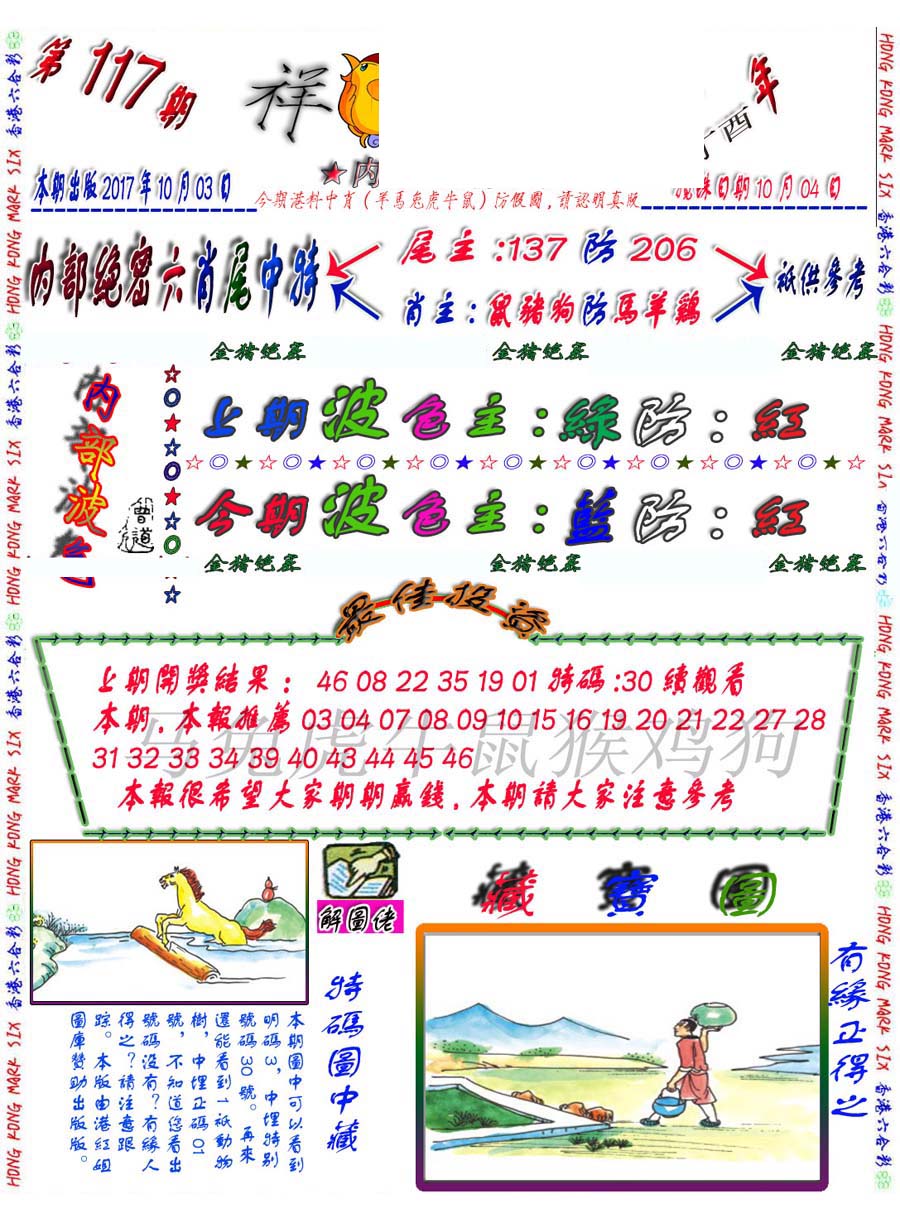 第117期
祥
酉年
★內
本期出版2017年10月03日
日期10月04日
今期港料中肖(羊馬兔虎牛鼠)防假圖,請認明真版
內部絕密六肖尾中特
尾主:137防206
肖主:鼠豬狗防馬羊鷄
祗供參考
金猪绝密 金猪绝密 金猪绝密
內部波
曾道
上期波色主:綠防:紅
今期波色主:藍防:紅
金猪绝密 金猪绝密 金猪绝密
最佳投資
上期開獎結果: 46 08 22 35 19 01 特碼:30 續觀看
本期.本報推薦 03 04 07 08 09 10 15 16 19 20 21 22 27 28
31 32 33 34 39 40 43 44 45 46
马兔虎牛鼠猴鸡狗
本報很希望大家期期贏錢.本期請大家注意參考
解圖佬
藏寶圖
有緣正得之
特碼圖中藏
本期圖中可以看到
明碼3,中埋特别
號碼30號。再來
還能看到1祇動物
樹,中埋正碼01
號,不知道您看出
號碼沒有?有緣人
得之?請注意跟
踪。本版由港紅姐
圖庫贊助出版版。
HONG KONG MARK SIX 香港六合彩
HONG KONG MARK SIX 香港六合彩
HONG KONG MARK SIX 香港六合彩
HONG KONG MARK SIX 香港六合彩
HONG KONG MARK SIX 香港六合彩
HONG KONG MARK SIX 香港六合彩
HONG KONG MARK SIX 香港六合彩
HONG KONG MARK SIX 香港六合彩